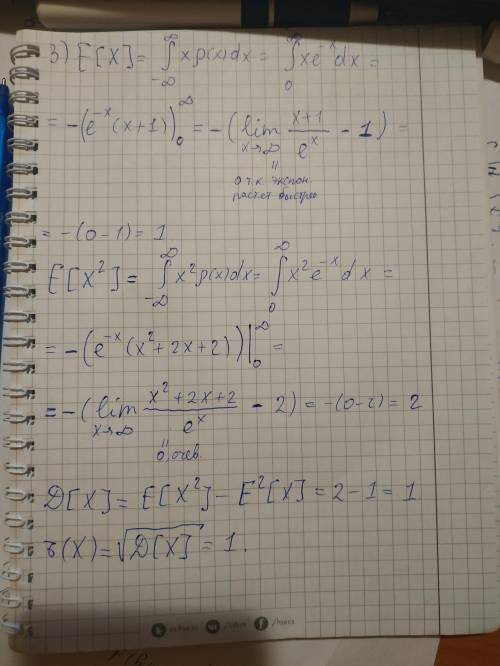 3) E[X] = ∫_{-∞}^{∞} x p(x) dx = ∫_{0}^{∞} x e^{-x} dx =
= -(e^{-x}(x+1)|_{0}^{∞} = -(lim_{x→∞} (x+1)/e^{x} - 1) =
"
0 т.к. экспон.
растет быстрее
= -(0-1) = 1
E[X^2] = ∫_{-∞}^{∞} x^2 p(x) dx = ∫_{0}^{∞} x^2 e^{-x} dx =
= -(e^{-x}(x^2+2x+2))|_{0}^{∞} =
= -(lim_{x→∞} (x^2+2x+2)/e^{x} - 2) = -(0-2) = 2
"
0, очев.
D[X] = E[X^2] - E^2[X] = 2-1 = 1
σ(X) = √D[X] = 1.